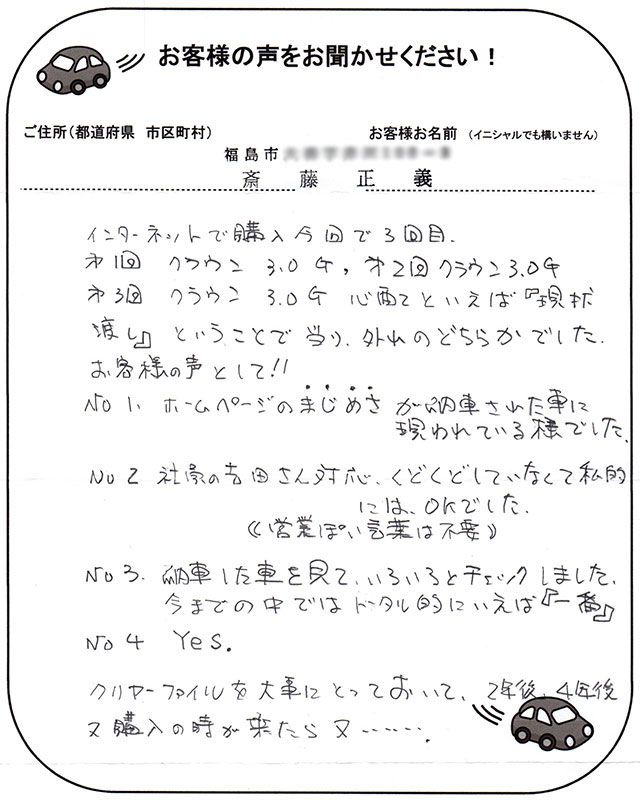 お客様の声をお聞かせください！
ご住所（都道府県 市区町村） お客様お名前 （イニシャルでも構いません）
福島市
斎藤 正義
インターネットで購入今回で3回目.
才1回 クラウン 3.0G, 才2回クラウン3.0G
才3回 クラウン 3.0G 心配てといえば『現状
渡し』ということで当り、外れのどちらかでした.
お客様の声として!!
NO 1. ホームページのまじめさが納車された車に
現われている様でした.
NO 2 社員の吉田さん対応、くどくどしていなくて私的
には、OKでした.
《営業ぽい言葉は不要》
NO 3. 納車した車を見て、いろいろとチェックしました.
今までの中ではトータル的にいえば『一番』
NO 4 Yes.
クリヤーファイルを大事にとっておいて、2年後、4年後
又購入の時が来たら又……….